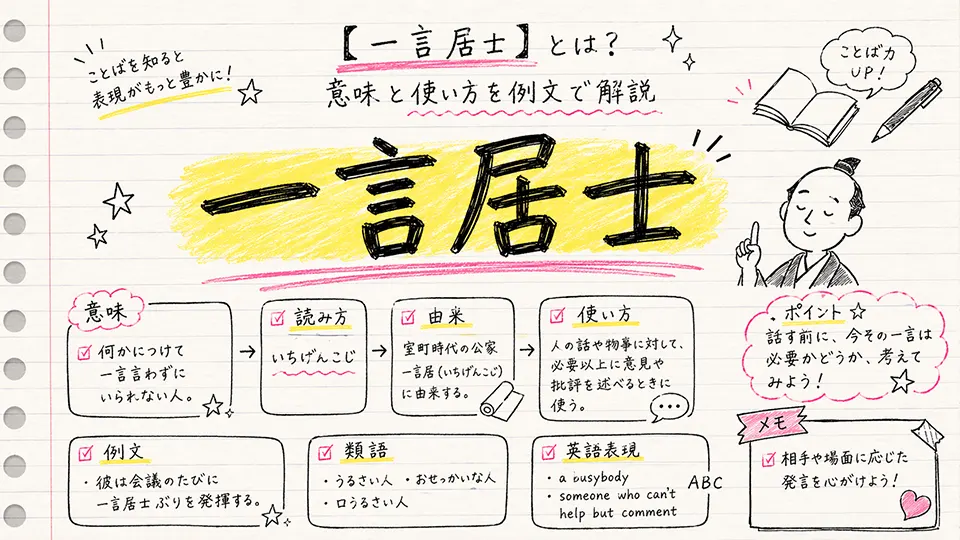 ことばを知ると
表現がもっと豊かに!
【一言居士】とは?
意味と使い方を例文で解説
ことば力
UP!
一言居士
意味
何かにつけて
一言言わずに
いられない人。
読み方
いちげんこじ
由来
室町時代の公家
一言居(いちげんこじ)
に由来する。
使い方
人の話や物事に対して、
必要以上に意見や
批評を述べるときに
使う。
ポイント
話す前に、今その一言は
必要かどうか、考えて
みよう!
例文
・彼は会議のたびに
一言居士ぶりを発揮する。
類語
・うるさい人 ・おせっかいな人
・口うるさい人
英語表現
・a busybody
・someone who can't
help but comment
ABC
メモ
相手や場面に応じた
発言を心がけよう!